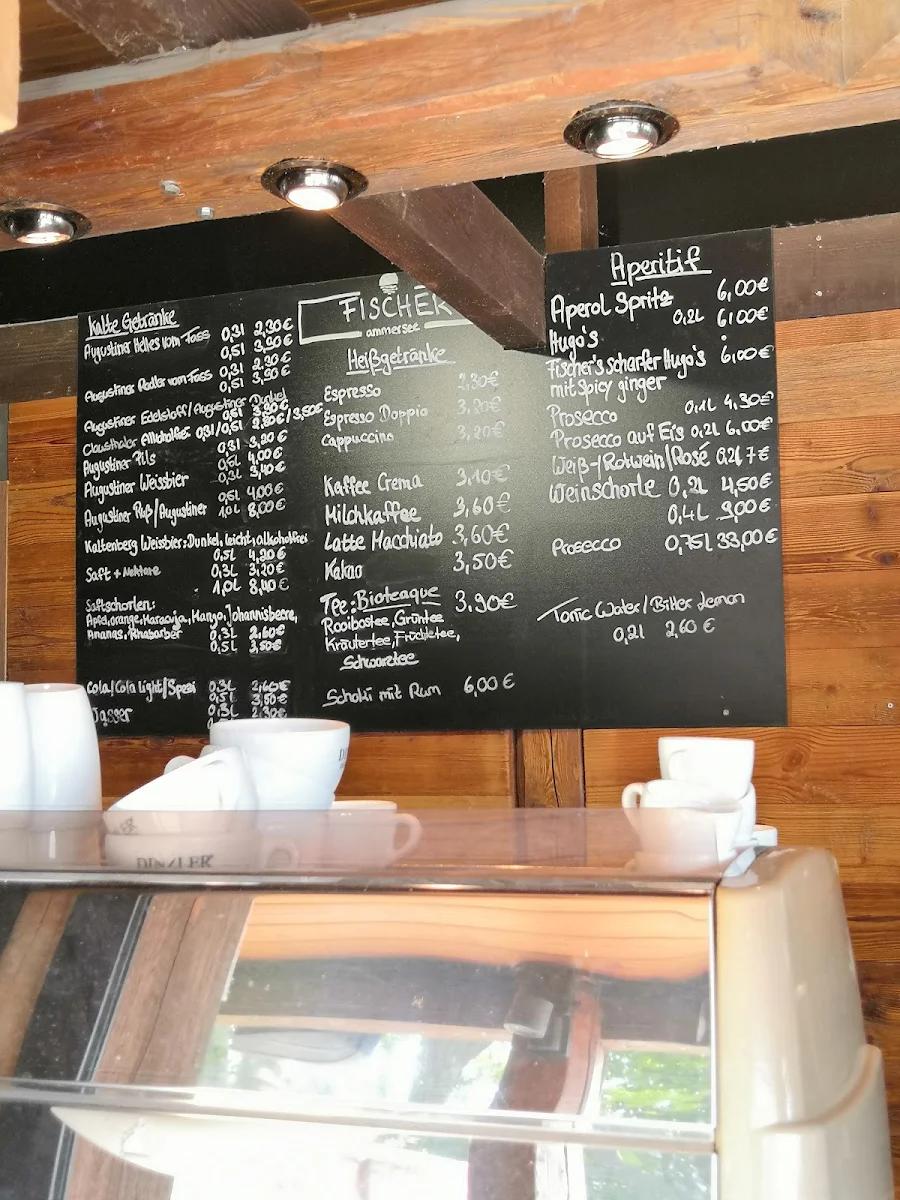 Kalte Getränke
Augustiner Helles vom Fass 0,3l 2,30€
0,5l 3,50€
Augustiner Radler vom Fass 0,3l 2,30€
0,5l 3,50€
Augustiner Edelstoff/Augustiner Dunkel
0,5l
Clausthaler Alkoholfrei 0,3l/0,5l 2,80€/3,50€
Augustiner Pils 0,3l 3,20€
0,5l 4,00€
Augustiner Weissbier 0,3l 3,40€
0,5l 4,00€
Augustiner Ruß/Augustiner 1,0L 8,00€
Kaltenberg Weissbier: Dunkel, leicht, alkoholfrei
0,5L 4,20€
Saft + Nektare 0,3L 3,20€
1,0L 8,40€
Saftschorlen:
Apfel, Orange, Maracuja, Mango, Johannisbeere,
Ananas, Rhabarber 0,3L 2,60€
0,5L 3,50€
Cola/Cola light/Spezi 0,3L 2,60€
0,5L 3,50€
0,3L 2,30€
FISCHER
ammersee
Heißgetränke
Espresso 2,30€
Espresso Doppio 3,80€
Cappuccino 3,20€
Kaffee Crema 3,10€
Milchkaffee 3,60€
Latte Macchiato 3,60€
Kakao 3,50€
Tee: Bioteaque 3.90€
Rooibostee, Grüntee
Kräutertee, Früchtetee,
Schwarztee
Schoki mit Rum 6,00€
Aperitif
Aperol Spritz 6,00€
Hugo's 0,2L 6,00€
Fischer's scharfer Hugo's 6,00€
mit Spicy ginger
Prosecco 0,1L 4,30€
Prosecco auf Eis 0,2L 6,00€
Weiß-/Rotwein/Rosé 0,2l 7€
Weinschorle 0,2L 4,50€
0,4L 9,00€
Prosecco 0,75L 33,00€
Tonic Water/Bitter Lemon
0,2l 2,60€
DINZLER